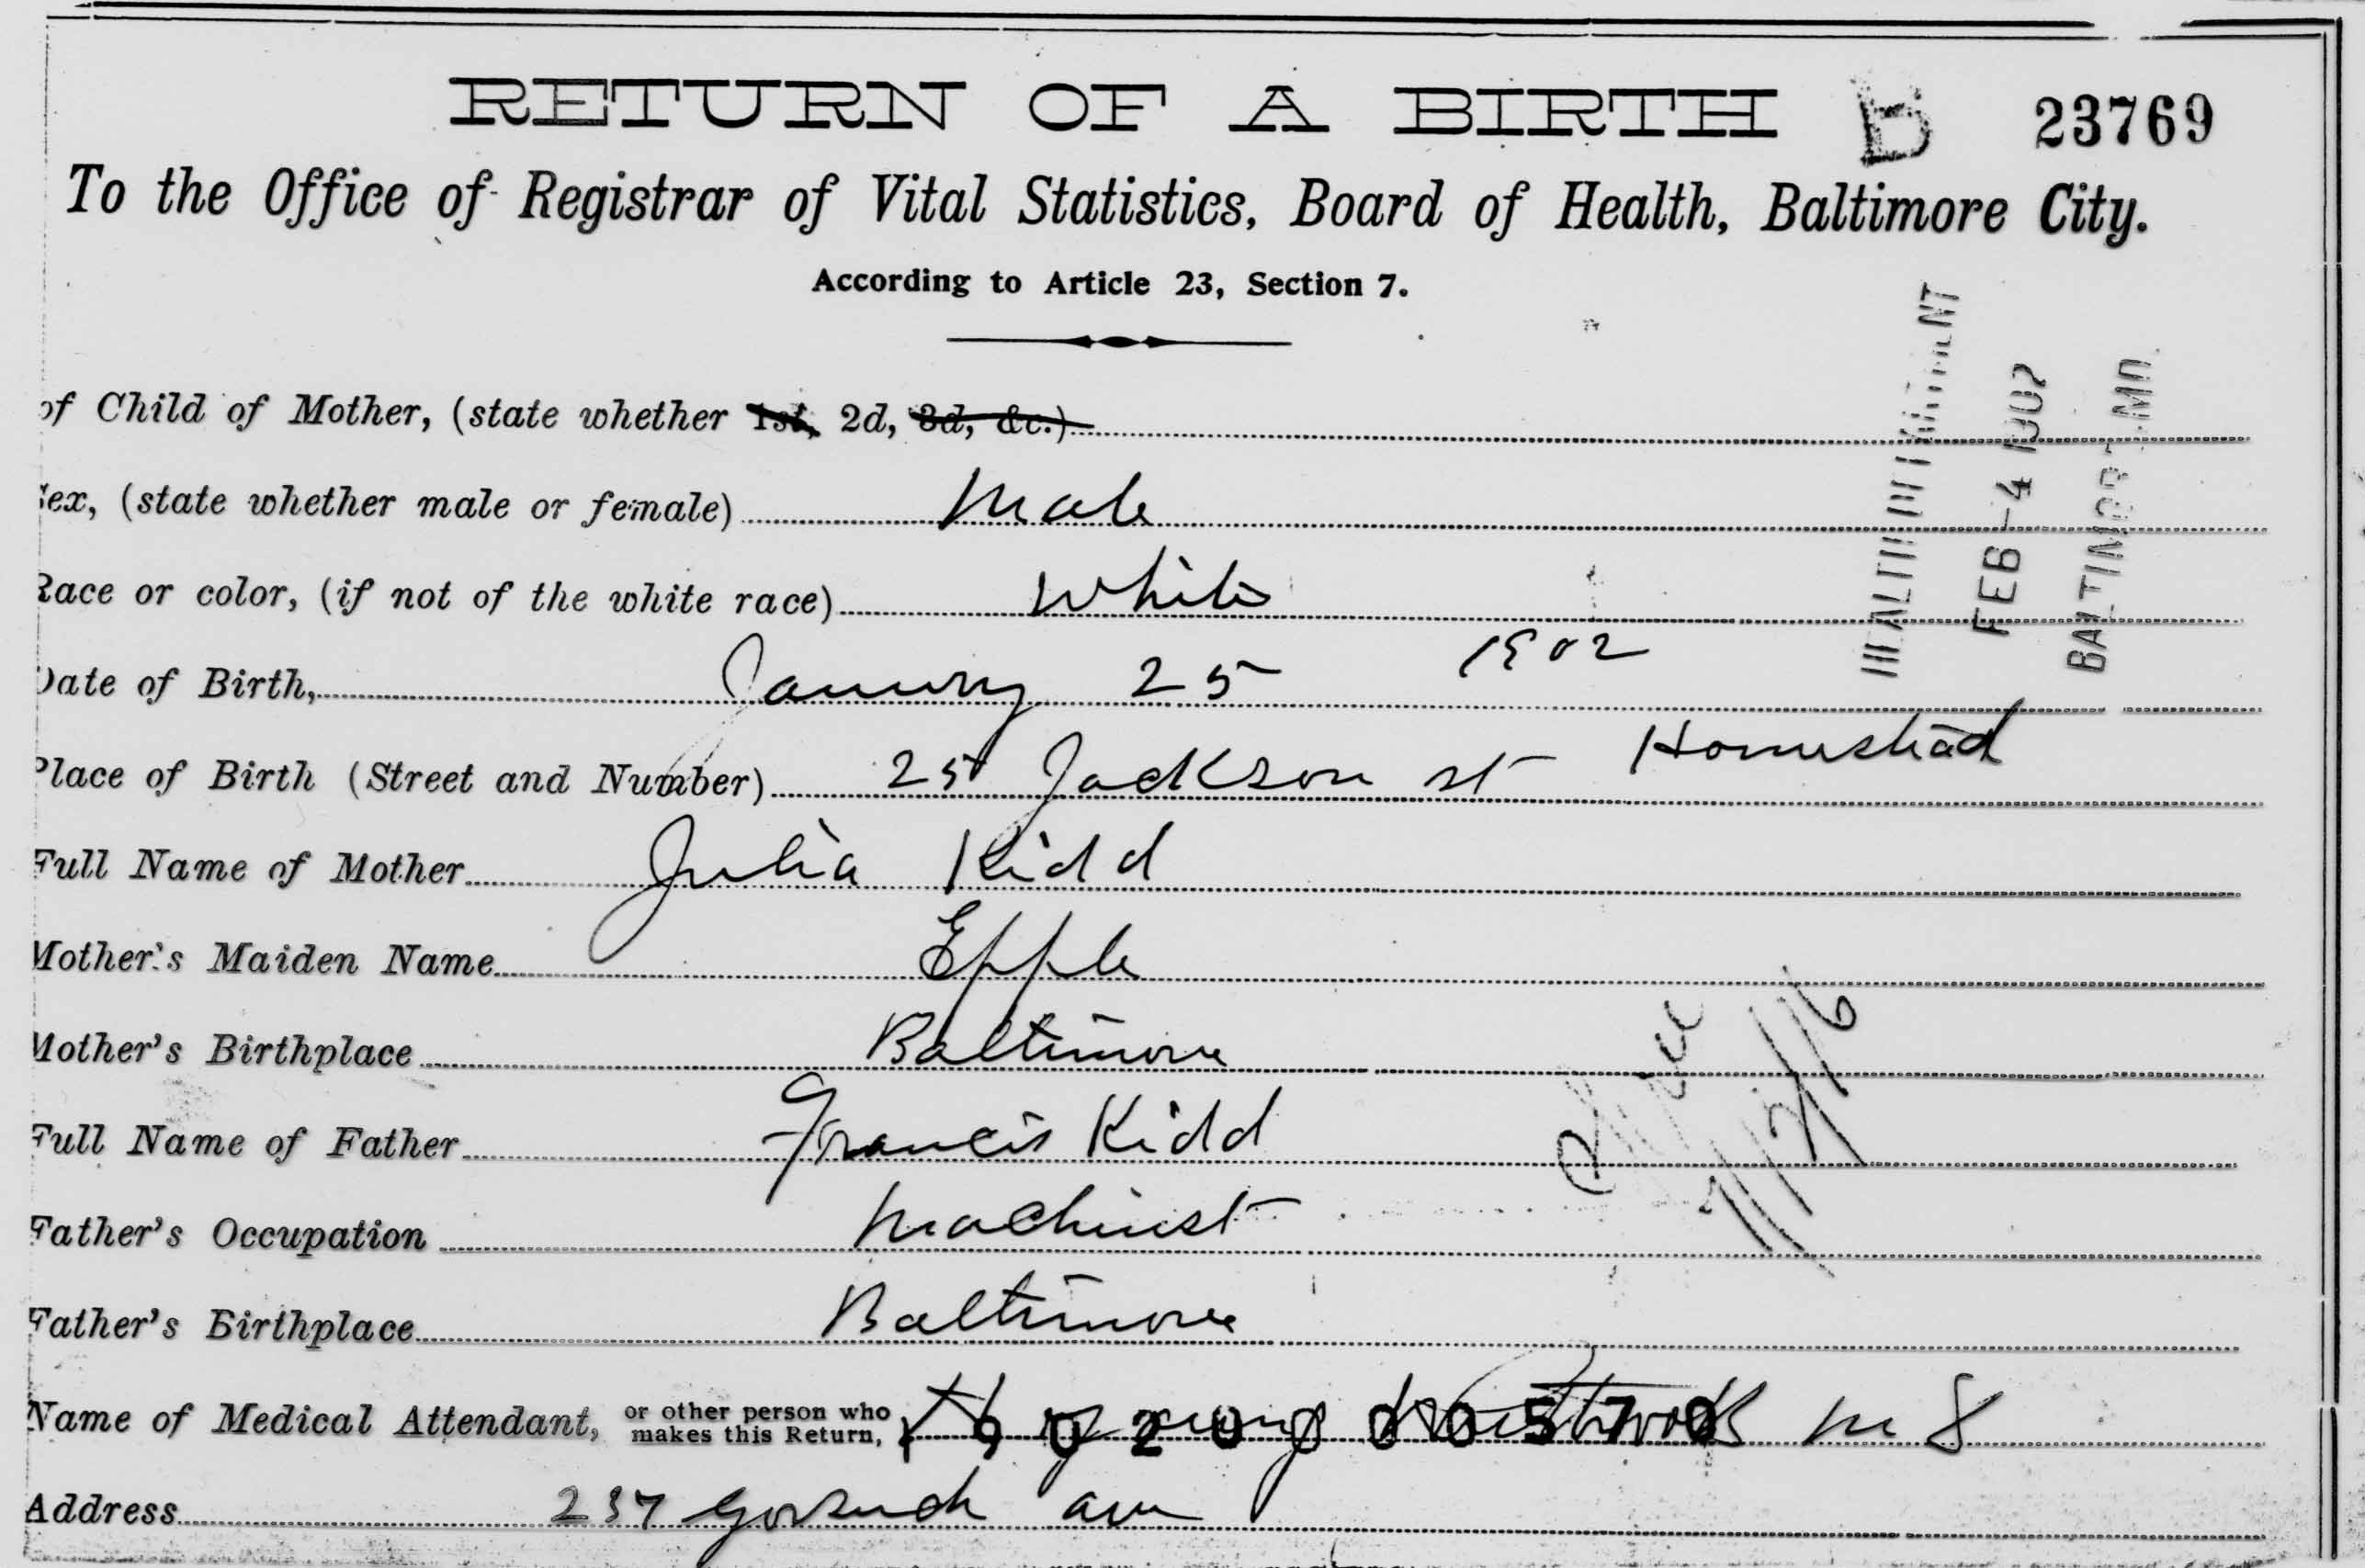 RETURN OF A BIRTH B 23769
To the Office of Registrar of Vital Statistics, Board of Health, Baltimore City.
According to Article 23, Section 7.
of Child of Mother, (state whether 1st, 2d, 3d, &c.)
Sex, (state whether male or female) Male
Race or color, (if not of the white race) White
Date of Birth, January 25 1902
Place of Birth (Street and Number) 25 Jackson st Homestead
Full Name of Mother Julia Kidd
Mother's Maiden Name Epple
Mother's Birthplace Baltimore
Full Name of Father Francis Kidd
Father's Occupation Machinist
Father's Birthplace Baltimore
Name of Medical Attendant, or other person who makes this Return,
Address 237 Gorsuch ave
HEALTH DEPARTMENT
FEB -4 1902
BALTIMORE MD.